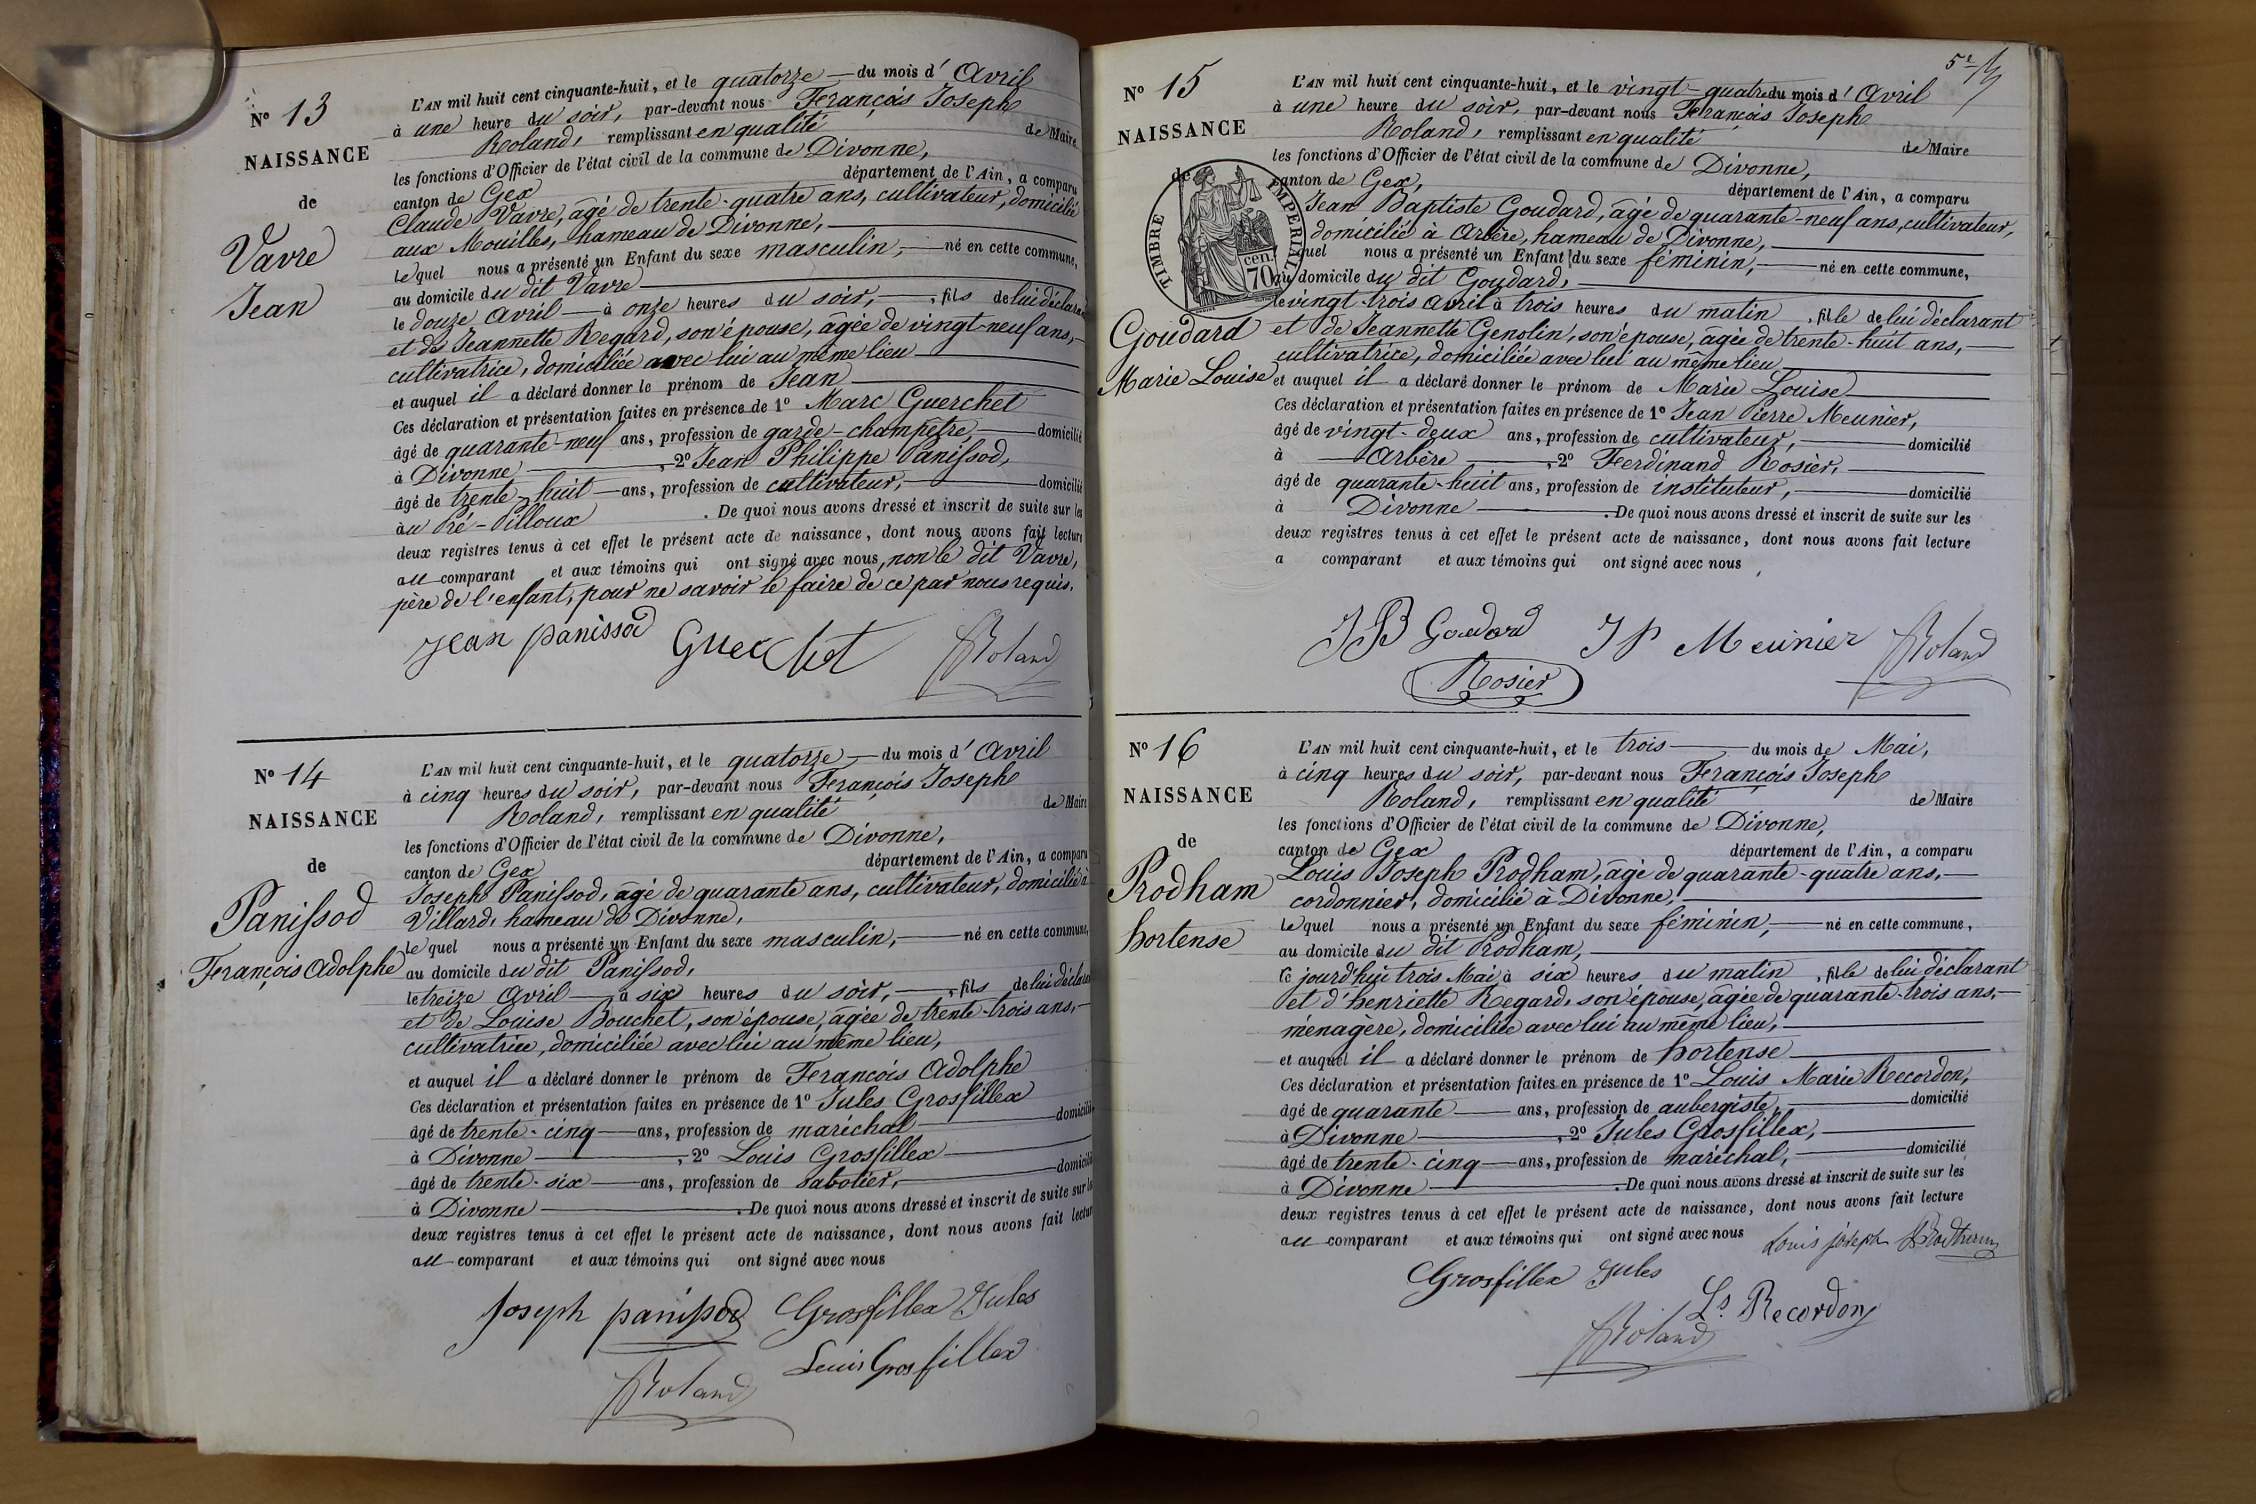 N° 13
NAISSANCE
de
Vavre
Jean
L'AN mil huit cent cinquante-huit, et le quatorze du mois d' Avril
à une heure du soir, par-devant nous François Joseph
Roland, remplissant en qualité de Maire
les fonctions d'Officier de l'état civil de la commune de Divonne,
canton de Gex département de l'Ain, a comparu
Claude Vavre, âgé de trente-quatre ans, cultivateur, domicilié
aux Mouilles, hameau de Divonne,
lequel nous a présenté un Enfant du sexe masculin, né en cette commune,
au domicile du dit Vavre
le douze Avril à onze heures du soir, , fils de lui déclarant
et de Jeannette Regard, son épouse, âgée de vingt-neuf ans,
cultivatrice, domiciliée avec lui au même lieu
et auquel il a déclaré donner le prénom de Jean
Ces déclaration et présentation faites en présence de 1° Marc Guerchet
âgé de quarante-neuf ans, profession de garde-champêtre, domicilié
à Divonne , 2° Jean Philippe Panissod,
âgé de trente-huit ans, profession de cultivateur, domicilié
au Pré-Pilloux . De quoi nous avons dressé et inscrit de suite sur les
deux registres tenus à cet effet le présent acte de naissance, dont nous avons fait lecture
au comparant et aux témoins qui ont signé avec nous, non le dit Vavre,
père de l'enfant, pour ne savoir le faire de ce par nous requis.
Jean panissod Guerchet Roland
N° 14
NAISSANCE
de
Panissod
François Adolphe
L'AN mil huit cent cinquante-huit, et le quatorze du mois d' Avril
à cinq heures du soir, par-devant nous François Joseph
Roland, remplissant en qualité de Maire
les fonctions d'Officier de l'état civil de la commune de Divonne,
canton de Gex département de l'Ain, a comparu
Joseph Panissod, âgé de quarante ans, cultivateur, domicilié à
Villard, hameau de Divonne,
lequel nous a présenté un Enfant du sexe masculin, né en cette commune,
au domicile du dit Panissod,
le treize Avril à six heures du soir, , fils de lui déclarant
et de Louise Bouchet, son épouse, âgée de trente-trois ans,
cultivatrice, domiciliée avec lui au même lieu,
et auquel il a déclaré donner le prénom de François Adolphe
Ces déclaration et présentation faites en présence de 1° Jules Grosfillex
âgé de trente-cinq ans, profession de maréchal domicilié
à Divonne , 2° Louis Grosfillex
âgé de trente-six ans, profession de sabotier, domicilié
à Divonne . De quoi nous avons dressé et inscrit de suite sur les
deux registres tenus à cet effet le présent acte de naissance, dont nous avons fait lecture
au comparant et aux témoins qui ont signé avec nous
Joseph panissod Grosfillex Jules
Louis Grosfillex
Roland
N° 15
NAISSANCE
de
TIMBRE IMPERIAL
70 cen.
Goudard
Marie Louise
L'AN mil huit cent cinquante-huit, et le vingt-quatre du mois d' Avril
à une heure du soir, par-devant nous François Joseph
Roland, remplissant en qualité de Maire
les fonctions d'Officier de l'état civil de la commune de Divonne,
canton de Gex, département de l'Ain, a comparu
Jean Baptiste Goudard, âgé de quarante-neuf ans, cultivateur,
domicilié à Arbère, hameau de Divonne,
lequel nous a présenté un Enfant du sexe féminin, né en cette commune,
au domicile du dit Goudard,
le vingt-trois Avril à trois heures du matin , fille de lui déclarant
et de Jeannette Genolin, son épouse, âgée de trente-huit ans,
cultivatrice, domiciliée avec lui au même lieu
et auquel il a déclaré donner le prénom de Marie Louise
Ces déclaration et présentation faites en présence de 1° Jean Pierre Meunier,
âgé de vingt-deux ans, profession de cultivateur, domicilié
à Arbère , 2° Ferdinand Rosier,
âgé de quarante-huit ans, profession de instituteur, domicilié
à Divonne . De quoi nous avons dressé et inscrit de suite sur les
deux registres tenus à cet effet le présent acte de naissance, dont nous avons fait lecture
a comparant et aux témoins qui ont signé avec nous
JB Goudard JP Meunier Roland
Rosier
N° 16
NAISSANCE
de
Prodham
hortense
L'AN mil huit cent cinquante-huit, et le trois du mois de Mai,
à cinq heures du soir, par-devant nous François Joseph
Roland, remplissant en qualité de Maire
les fonctions d'Officier de l'état civil de la commune de Divonne,
canton de Gex département de l'Ain, a comparu
Louis Joseph Prodham, âgé de quarante-quatre ans,
cordonnier, domicilié à Divonne,
lequel nous a présenté un Enfant du sexe féminin, né en cette commune,
au domicile du dit Prodham,
ce jourd'hui trois Mai à six heures du matin , fille de lui déclarant
et d'henriette Regard, son épouse, âgée de quarante-trois ans,
ménagère, domiciliée avec lui au même lieu,
et auquel il a déclaré donner le prénom de hortense
Ces déclaration et présentation faites en présence de 1° Louis Marie Recordon,
âgé de quarante ans, profession de aubergiste, domicilié
à Divonne , 2° Jules Grosfillex,
âgé de trente-cinq ans, profession de maréchal, domicilié
à Divonne . De quoi nous avons dressé et inscrit de suite sur les
deux registres tenus à cet effet le présent acte de naissance, dont nous avons fait lecture
au comparant et aux témoins qui ont signé avec nous Louis joseph
Grosfillex Jules
Ls Recordon
Roland